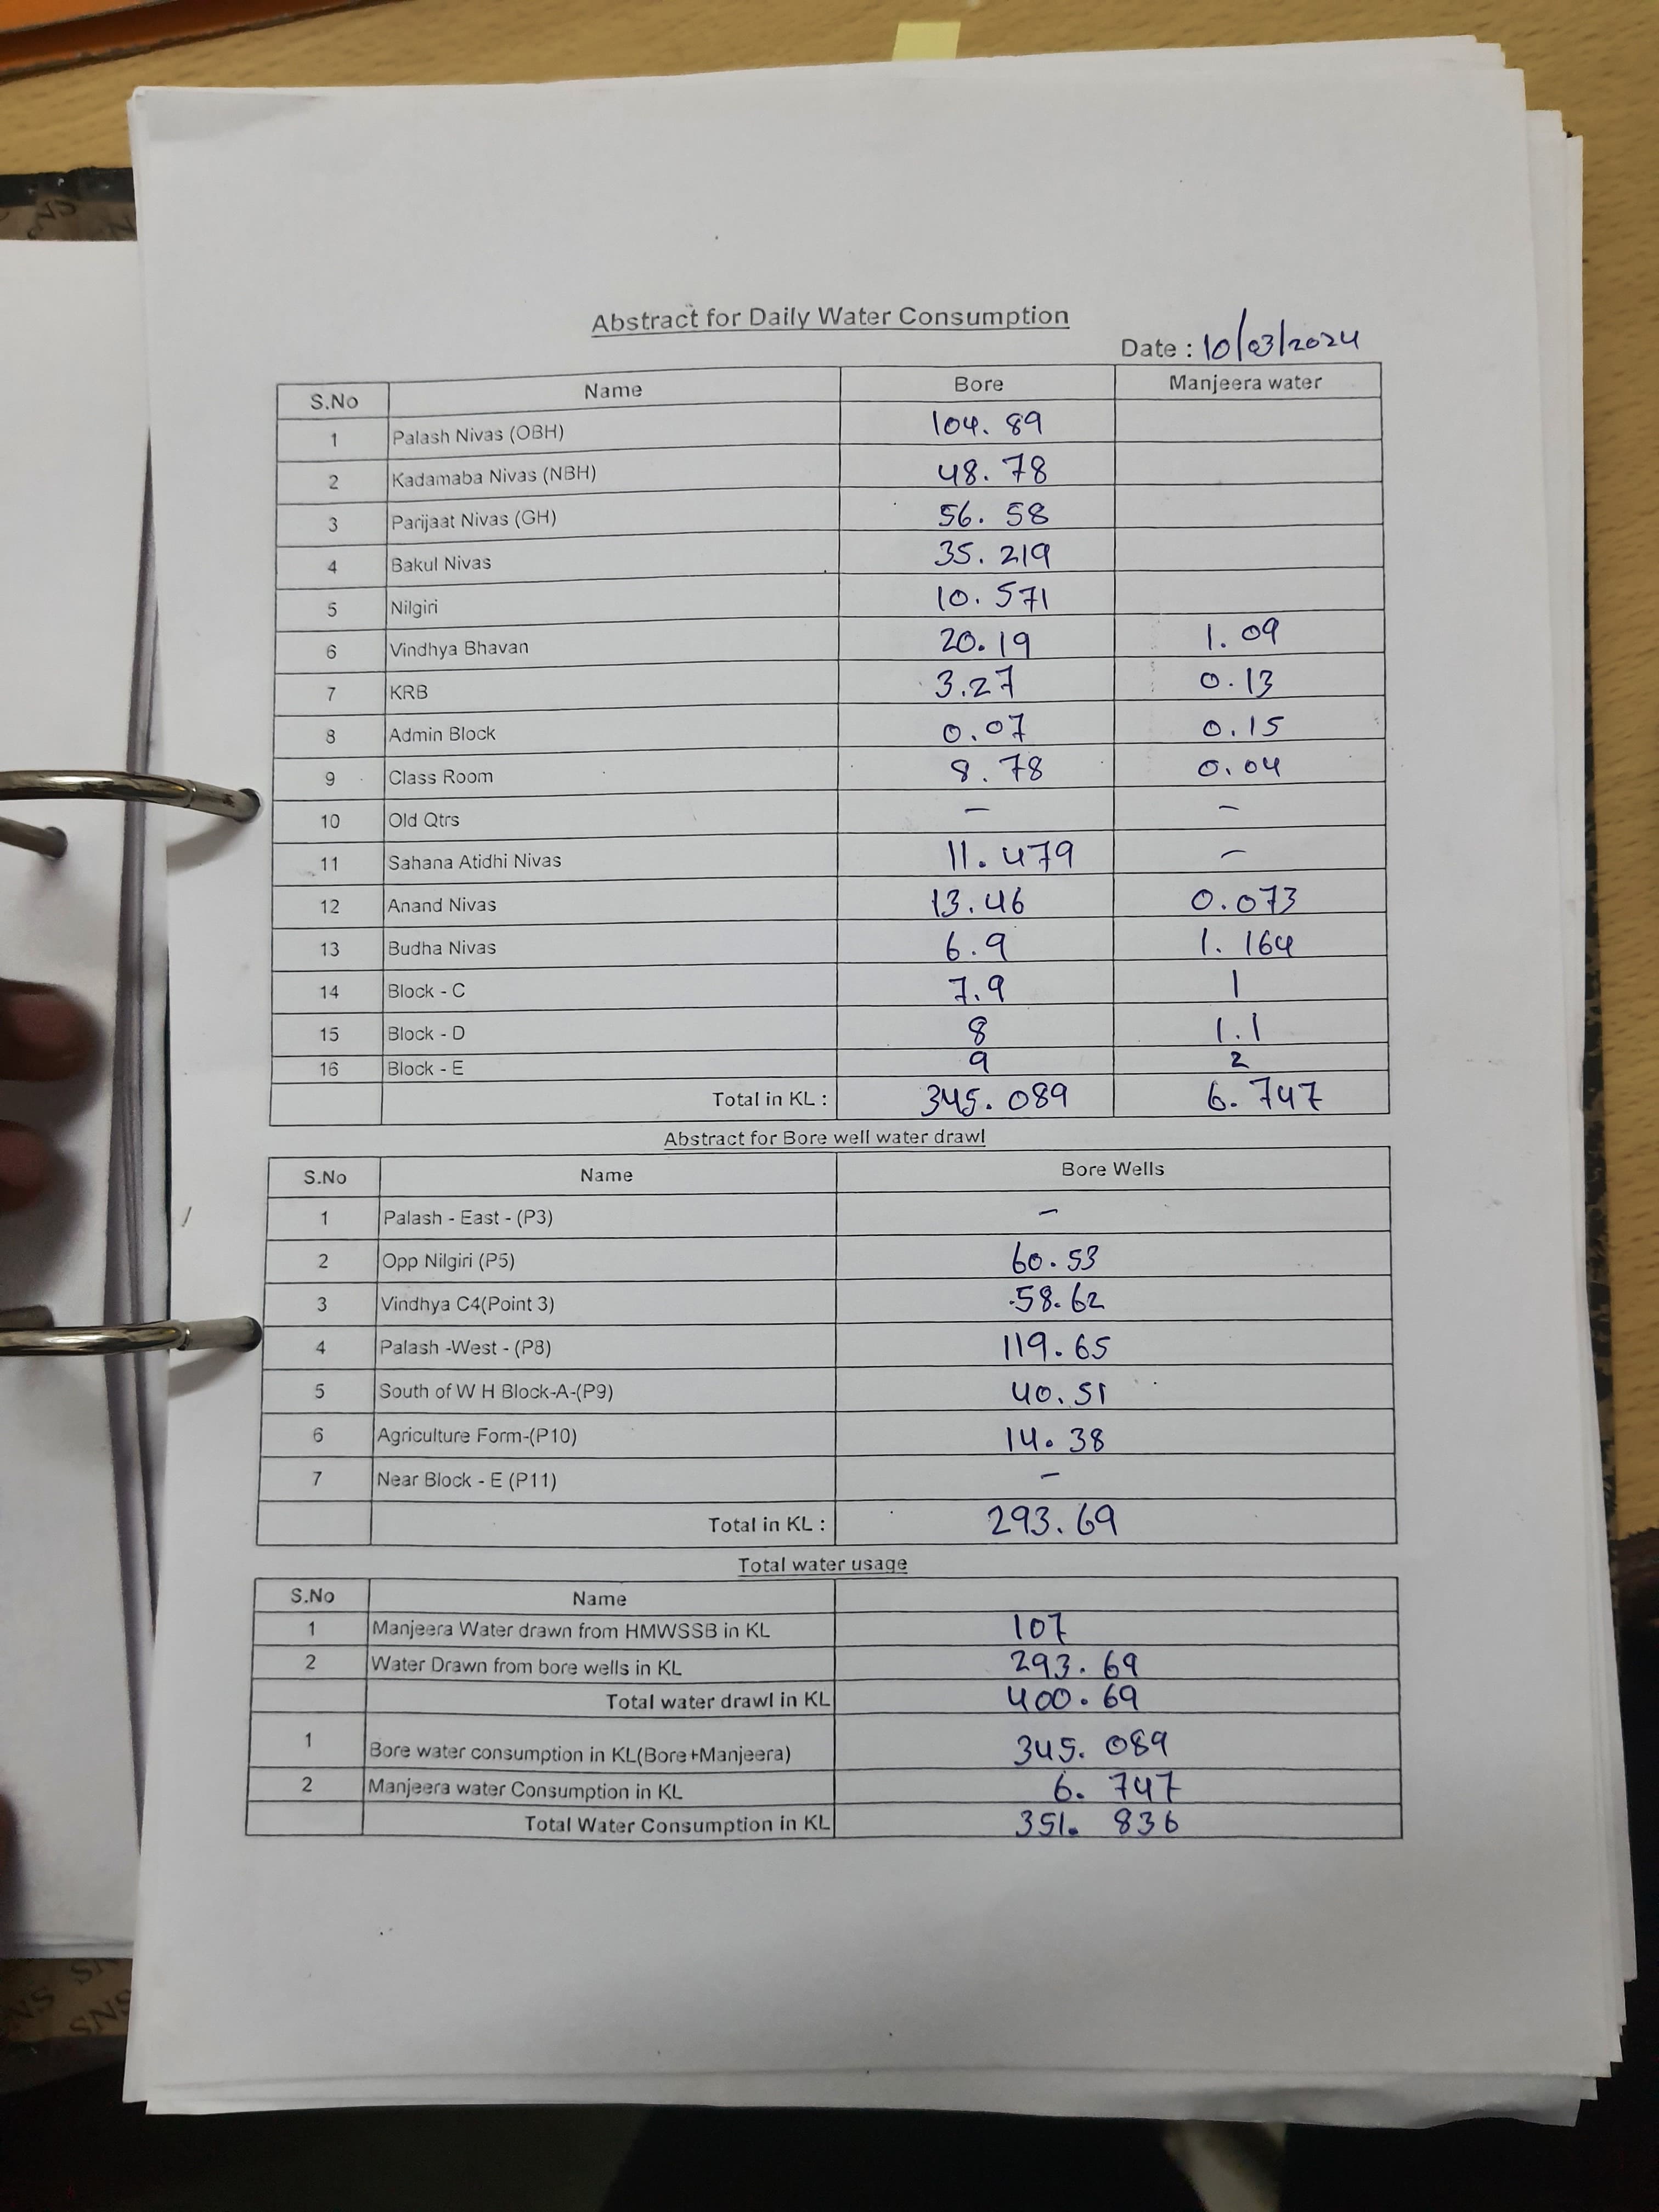 Abstract for Daily Water Consumption
Date : 10/03/2024
S.No Name Bore Manjeera water
1 Palash Nivas (OBH) 104.89
2 Kadamaba Nivas (NBH) 48.78
3 Parijaat Nivas (GH) 56.58
4 Bakul Nivas 35.219
5 Nilgiri 10.571
6 Vindhya Bhavan 20.19 1.09
7 KRB 3.27 0.13
8 Admin Block 0.07 0.15
9 Class Room 8.78 0.04
10 Old Qtrs - -
11 Sahana Atidhi Nivas 11.479 -
12 Anand Nivas 13.46 0.073
13 Budha Nivas 6.9 1.164
14 Block - C 7.9 1
15 Block - D 8 1.1
16 Block - E 9 2
Total in KL : 345.089 6.747
Abstract for Bore well water drawl
S.No Name Bore Wells
1 Palash - East - (P3) -
2 Opp Nilgiri (P5) 60.53
3 Vindhya C4(Point 3) 58.62
4 Palash -West - (P8) 119.65
5 South of W H Block-A-(P9) 40.51
6 Agriculture Form-(P10) 14.38
7 Near Block - E (P11) -
Total in KL : 293.69
Total water usage
S.No Name
1 Manjeera Water drawn from HMWSSB in KL 107
2 Water Drawn from bore wells in KL 293.69
Total water drawl in KL 400.69
1 Bore water consumption in KL(Bore+Manjeera) 345.089
2 Manjeera water Consumption in KL 6.747
Total Water Consumption in KL 351.836
SNS
SNS